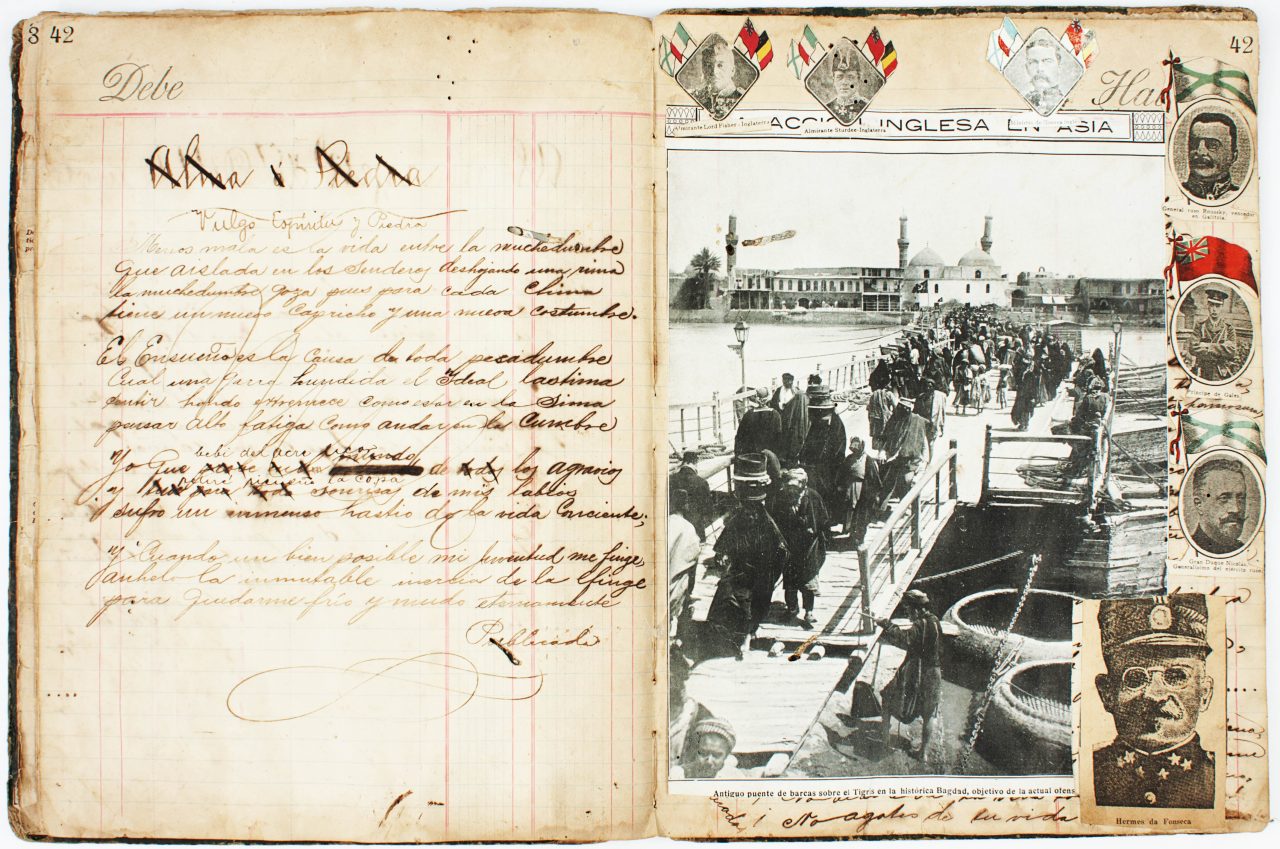 8 42
Debe
Alma ó Piedra
Vulgo Espíritu y Piedra
Menos mala es la vida entre la muchedumbre
que aislada en los senderos deshojando una rima
la muchedumbre goza pues para cada clima
tiene un nuevo Capricho y una nueva costumbre.
El Ensueño es la Causa de toda pesadumbre
Cual una garra hundida el Ideal lastima
sentir hondo estremece como estar en la Sima
pensar alto fatiga Como andar por la Cumbre
bebí del acre
Yo que de todos los agravios
retiré risueño la copa
y sonrisa de mis labios
sufro un inmenso hastío de la vida Conciente;
y Cuando un bien posible mi juventud me finge,
anhelo la inmutable inercia de la esfinge
para quedarme frío y mudo eternamente
Publicada
42
Almirante Lord Fisher - Inglaterra
Almirante Sturdee - Inglaterra
Ha
INGLESA EN ASIA
General ruso Roussky, vencedor en Galitzia.
Príncipe de Gales
Gran Duque Nicolás, Generalísimo del ejército ruso
Antiguo puente de barcas sobre el Tigris en la histórica Bagdad, objetivo de la actual ofens
Hermes da Fonseca
! No agotes de tu vida